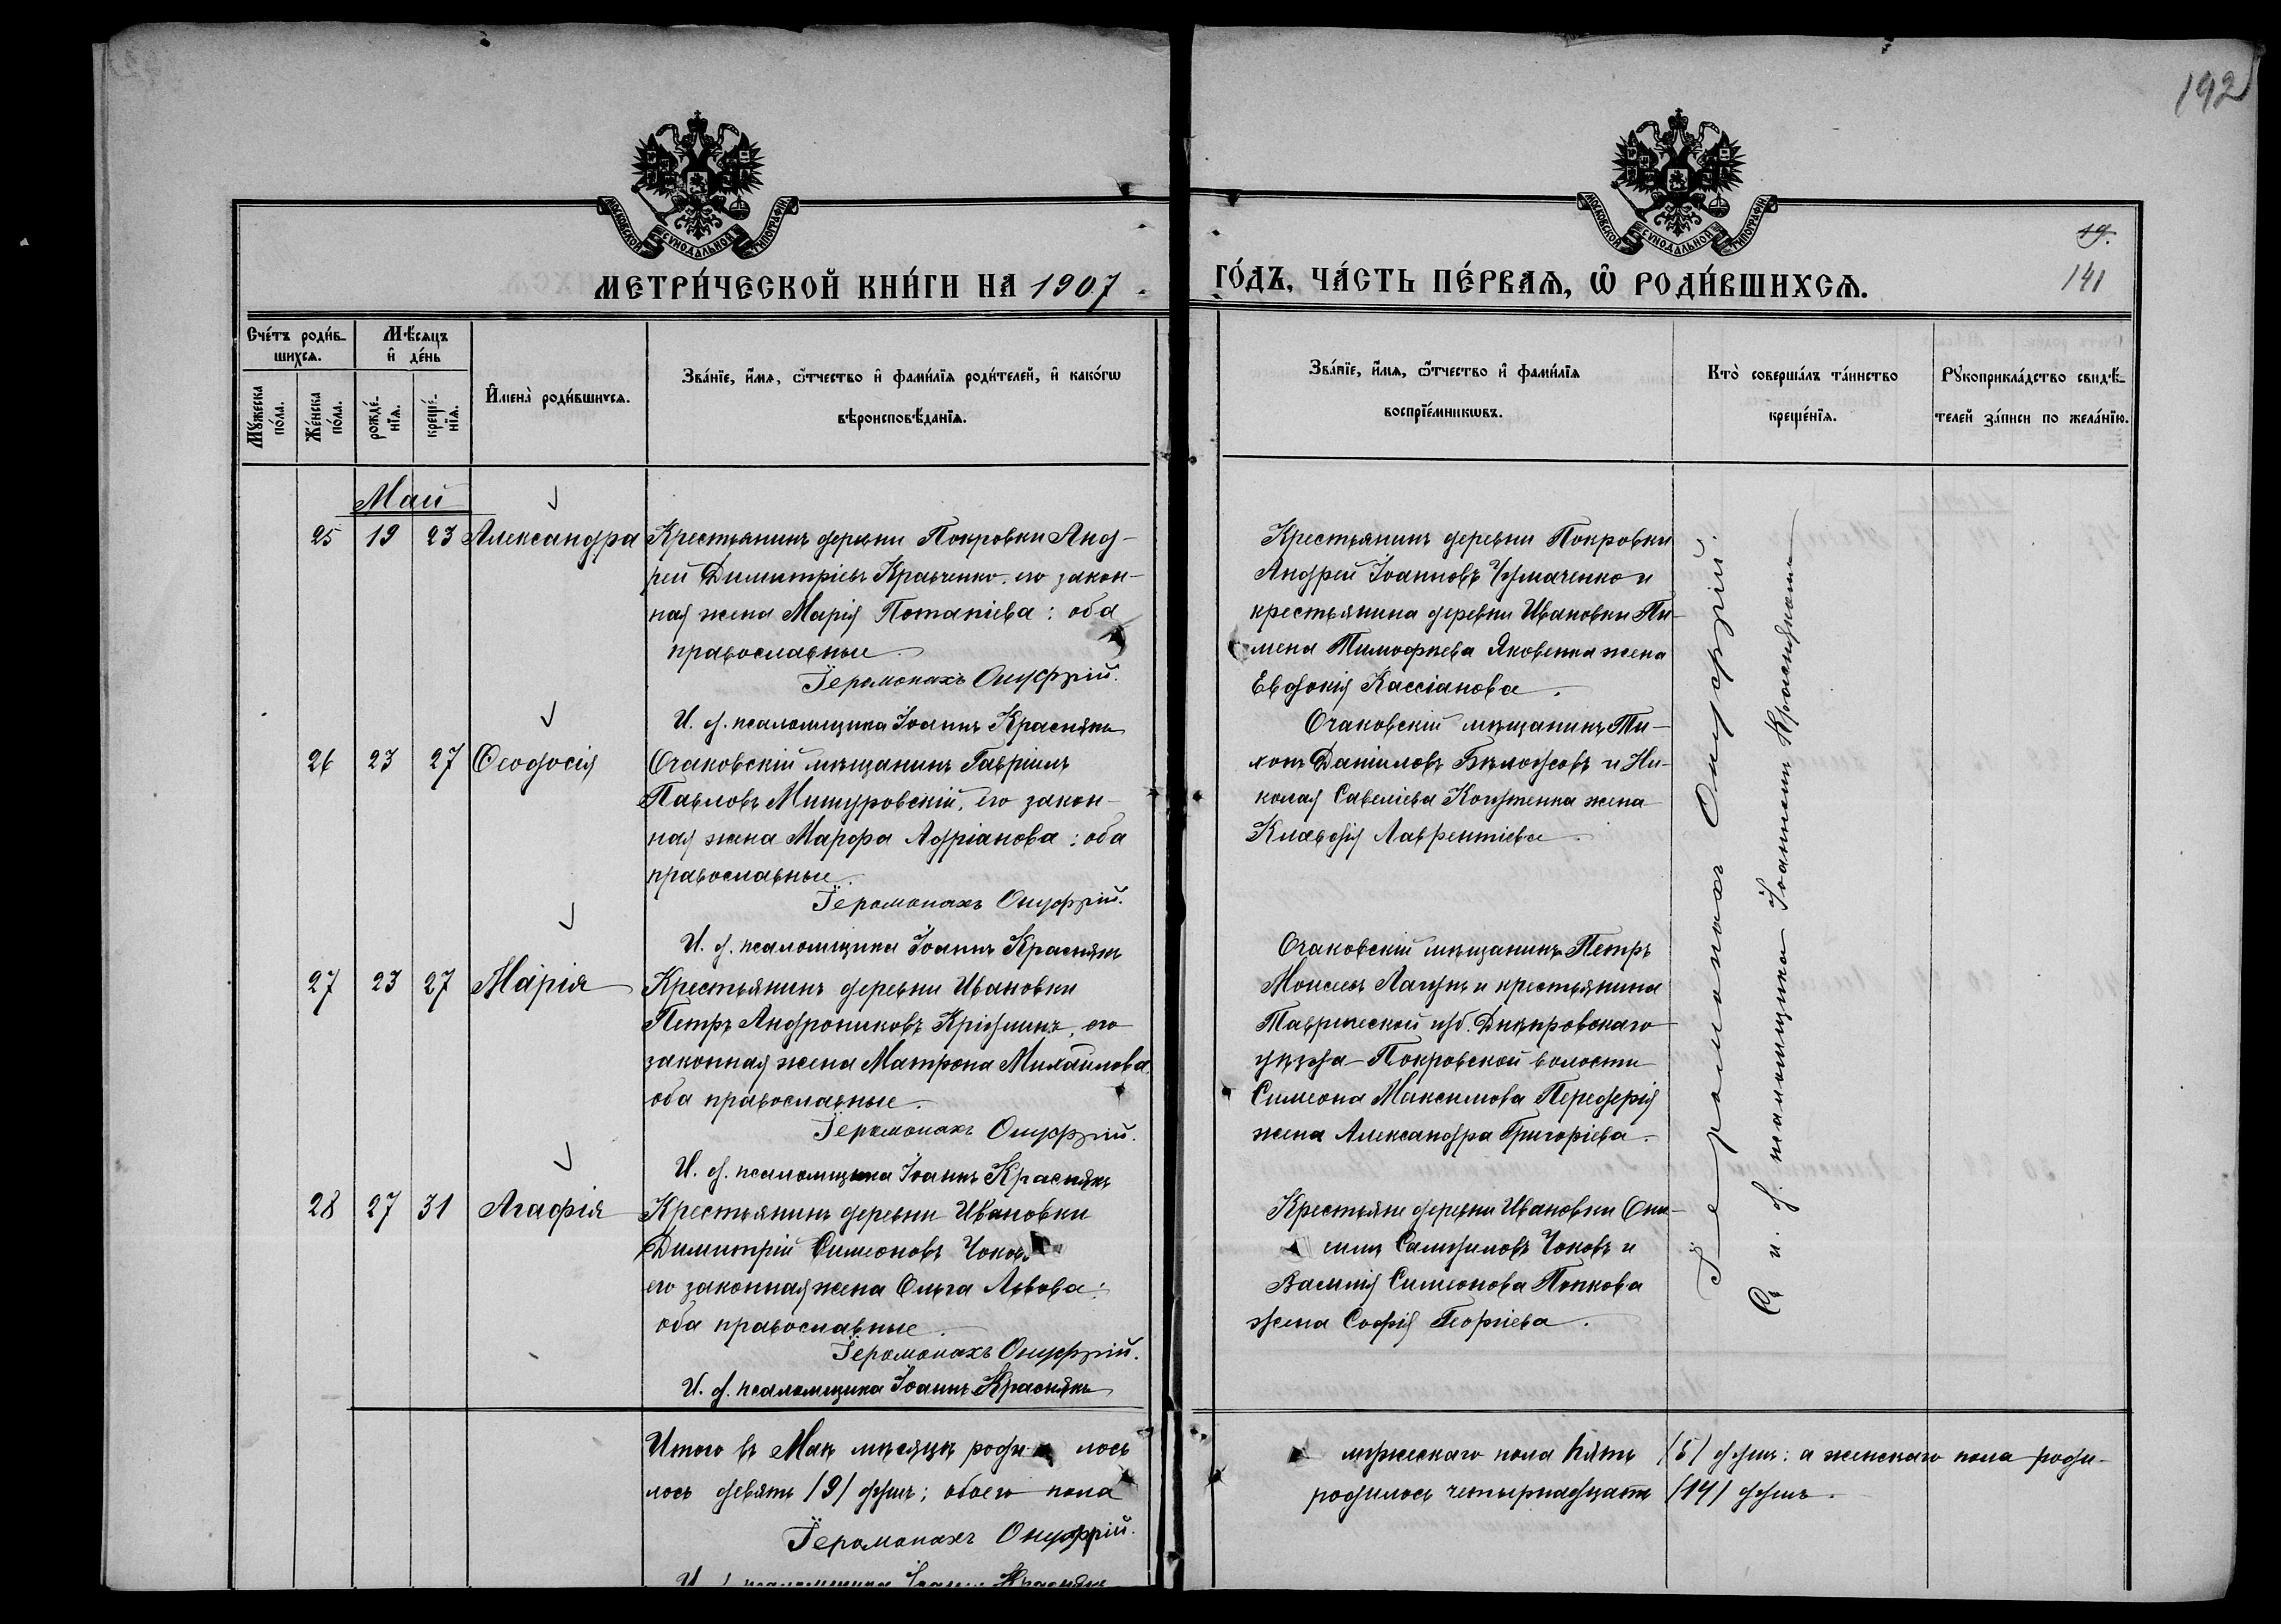 192
МОСКОВСКОЙ СѴНОДАЛЬНОЙ ТИПОГРАФІИ
МОСКОВСКОЙ СѴНОДАЛЬНОЙ ТИПОГРАФІИ
19.
141
МЕТРИ́ЧЕСКОЙ КНИ́ГИ НА 1907
ГО́ДЪ, ЧА́СТЬ ПЕ́РВАѦ, Ѡ҆ РОДИ́ВШИХСѦ.
Сче́тъ роди́в-
шихсѧ.
Мѣ́сѧцъ
и҆ де́нь
Мꙋ́жеска
по́ла.
Же́нска
по́ла.
рожде́-
нїѧ.
креще́-
нїѧ.
И҆мена̀ роди́вшихсѧ.
Зва́нїе, и҆́мѧ, ѻ҆́тчество и҆ фами́лїѧ роди́телей, и҆ како́гѡ
вѣроисповѣ́данїѧ.
Зва́нїе, и҆́мѧ, ѻ҆́тчество и҆ фами́лїѧ
воспрїе́мникѡвъ.
Кто̀ соверша́лъ та́инство
креще́нїѧ.
Рꙋкоприкла́дство свидѣ́-
телей за́писи по жела́нїю.
Май
25 19 23 Александра
Крестьянинъ деревни Покровки Анд-
рей Димитріевъ Кравченко, его закон-
ная жена Марія Потапіева: оба
православные.
Іеромонахъ Онуфрій.
И. д. псаломщика Іоаннъ Краснякъ
Крестьянинъ деревни Покровки
Андрей Іоанновъ Чумаченко и
крестьянина деревни Ивановки Пи-
мена Тимофѣева Яковенка жена
Евдокія Кассіанова.
26 23 27 Ѳеодосія
Очаковскій мѣщанинъ Гавріилъ
Павловъ Мишуровскій, его закон-
ная жена Марфа Адріанова: оба
православные.
Іеромонахъ Онуфрій.
И. д. псаломщика Іоаннъ Краснякъ
Очаковскій мѣщанинъ Ти-
хонъ Даніиловъ Бѣлоусовъ и Ни-
колая Савеліева жена
Клавдія Лаврентіева.
27 23 27 Марія
Крестьянинъ деревни Ивановки
Петръ Андрониковъ его
законная жена Матрона Михаилова
оба православные.
Іеромонахъ Онуфрій.
И. д. псаломщика Іоаннъ Краснякъ
Очаковскій мѣщанинъ Петръ
Моисеевъ Лагунъ и крестьянина
Таврической губ. Днѣпровскаго
уѣзда Покровской волости
Симеона Максимова Передерія
жена Александра Григоріева.
28 27 31 Агафія
Крестьянинъ деревни Ивановки
Димитрій Симеоновъ
его законная жена Ольга Львова:
оба православные.
Іеромонахъ Онуфрій.
И. д. псаломщика Іоаннъ Краснякъ
Крестьяне деревни Ивановки Они-
симъ Самуиловъ Чоковъ и
Василія Симеонова Попкова
жена Софія Георгіева.
Іеромонахъ Онуфрій.
Съ и. д. псаломщика Іоанномъ Краснякомъ
Итого въ Маѣ мѣсяцѣ роди- лось
мужескаго пола пять /5/ душъ: а женскаго пола роди-
лось девять /9/ душъ; обоего пола
родилось четырнадцать /14/ душъ.
Іеромонахъ Онуфрій.
И. д. псаломщика Іоаннъ Краснякъ